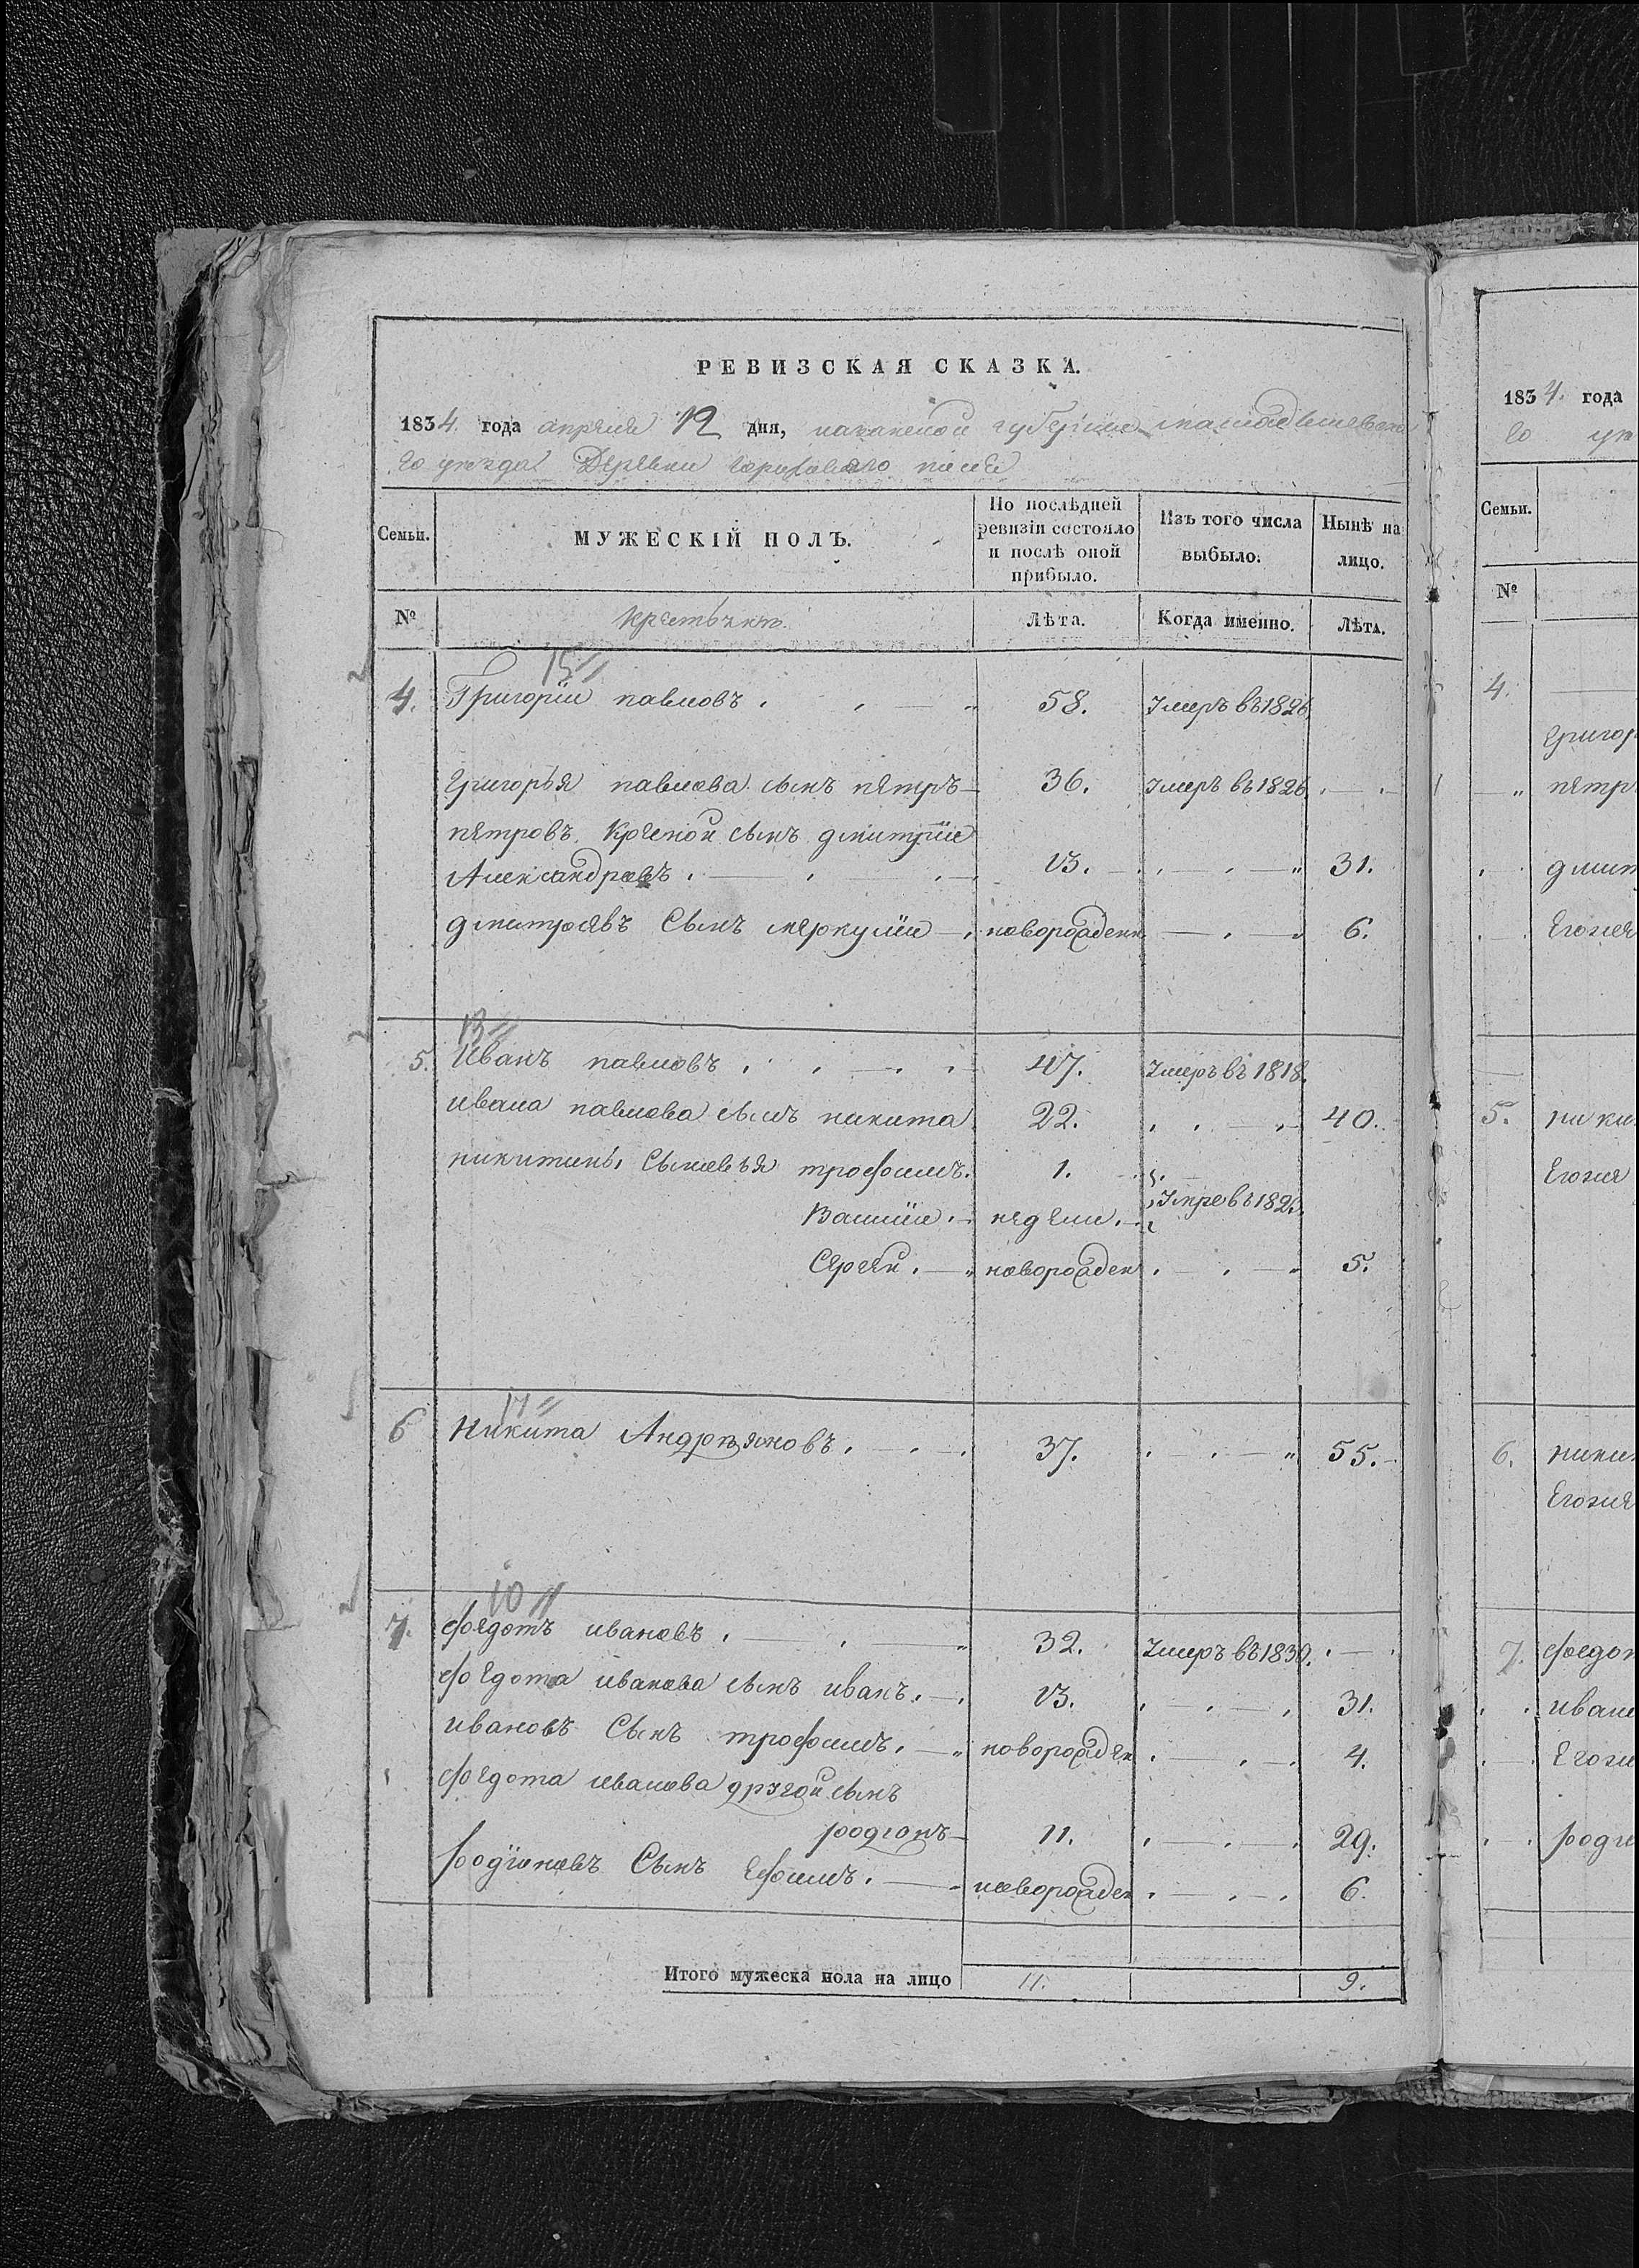 РЕВИЗСКАЯ СКАЗКА.
1834 года апреля 12 дня, казанской губернии мамадышевска
го уезда Деревни
Семьи.
МУЖЕСКІЙ ПОЛЪ.
По послѣдней ревизіи состояло и послѣ оной прибыло.
Изъ того числа выбыло.
Нынѣ на лицо.
№
Лѣта.
Когда именно.
Лѣта.
15//
4. Григорїи павловъ. 58. Умеръ въ 1826.
Григорья павлова сынъ петръ 36. Умеръ въ 1826
петровъ креной сынъ дмитрїи
Александровъ. 13. 31.
дмитреявъ Сынъ меркулїи новорожденн 6.
13//
5. Иванъ павловъ. 47. Умеръ въ 1818.
ивана павлова сынъ никита 22. 40.
никитины Сыневья трофимъ. 1.
Василїи. недели. Умре въ 182
Сергѣи. новорожден 5.
6 Никита Андреяновъ. 37. 55.
10//
7. Федотъ ивановъ. 32. Умеръ въ 1830.
Федота иванова сынъ иванъ. 13. 31.
ивановъ Сынъ трофимъ. новорожден 4.
Федота иванова другой сынъ
родионъ 11. 29.
Родїоновъ Сынъ Ефимъ. новорожден 6.
Итого мужеска пола на лицо 11. 9.
1834. года
го
Семьи.
№
4.
Григор
петръ
дмит
5. ники
6. ники
7. Федот
иван
роди